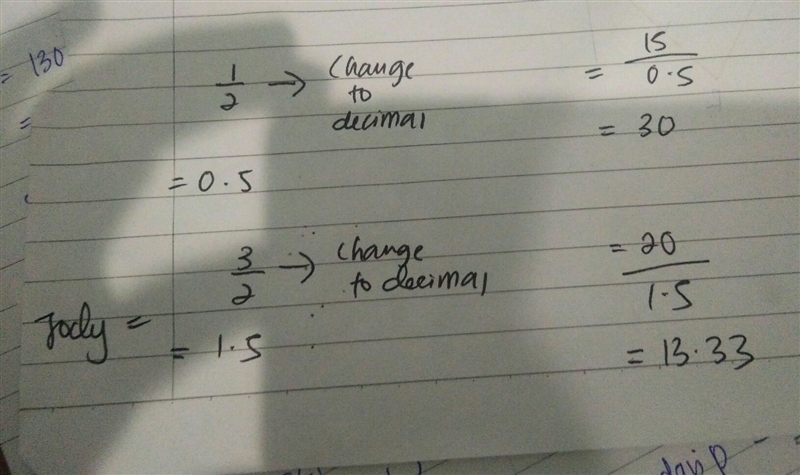 = 130
=
1/2 → Change
to
decimal
= 15/0.5
= 30
= 0.5
3/2 → change
to decimal
= 20/1.5
Jody =
= 1.5
= 13.33